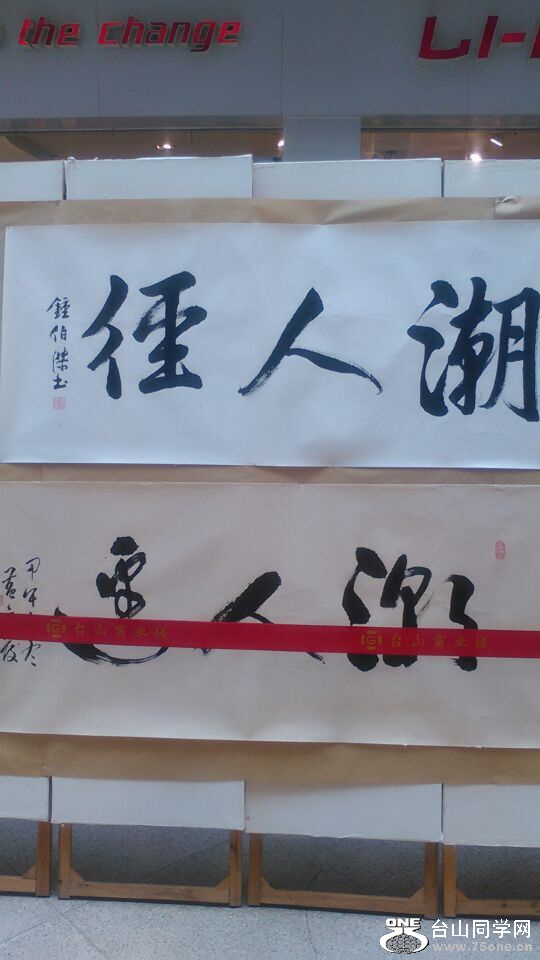 the change
LI-
潮人徑
鍾伯傑书
潮人
甲午
台山商业城 台山商业城
ONE 台山同学网
www.75one.cn